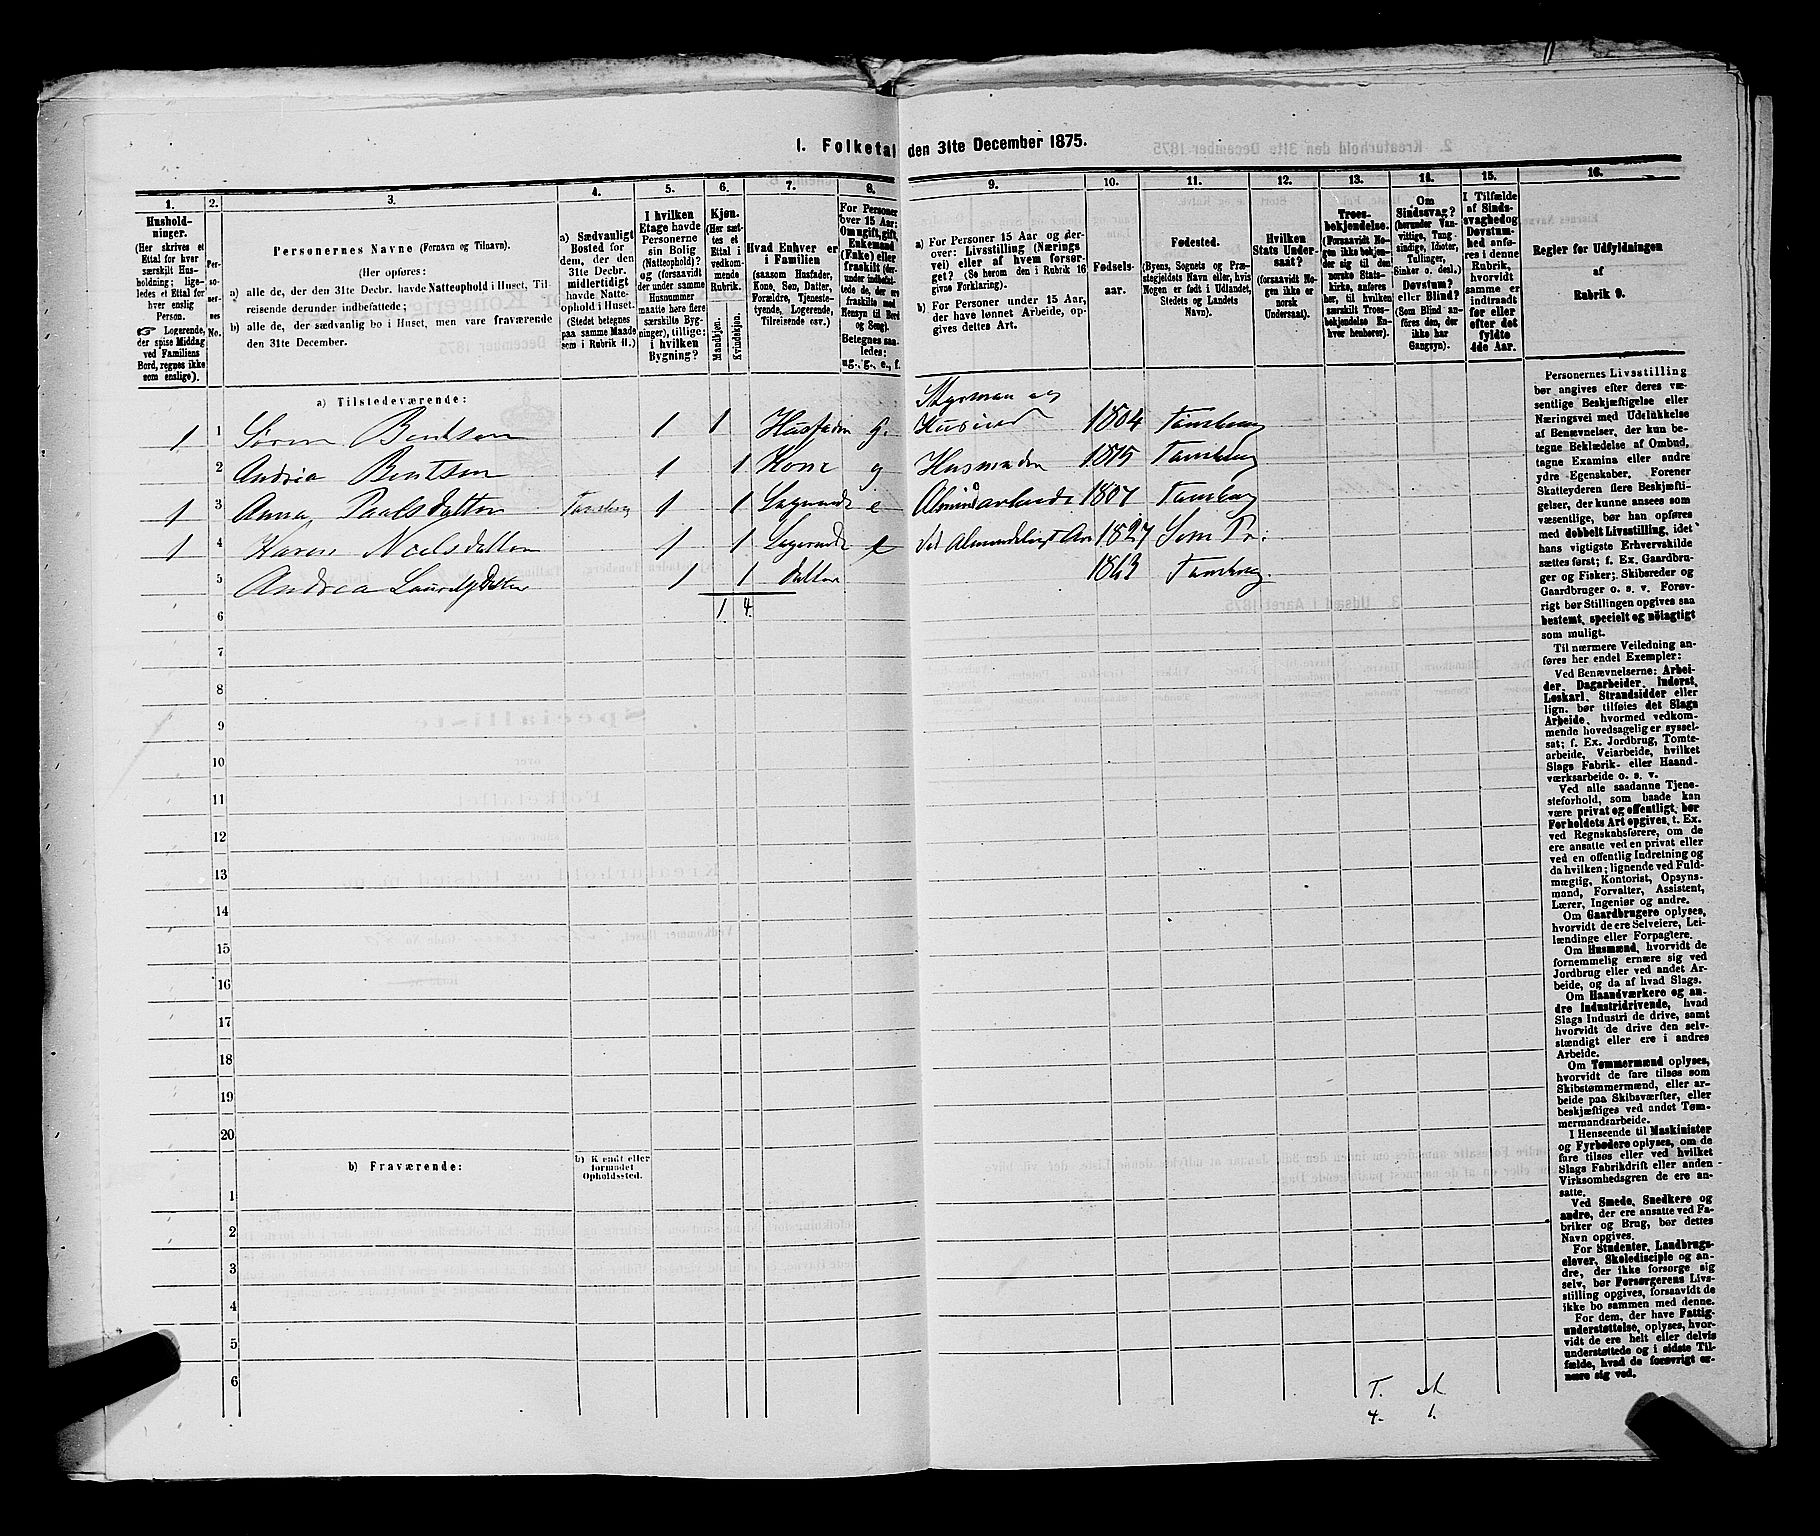 1. Folketal den 31te December 1875.
1.
2.
3.
4.
5.
6.
7.
8.
9.
10.
11.
12.
13.
14.
15.
16.
Hushold-
ninger.
(Her skrives et
Ettal for hver
særskilt Hus-
holdning; lige-
ledes et Ettal for
hver enslig
Person.
☞ Logerende,
der spise Middag
ved Familiens
Bord, regnes ikke
som enslige).
Per-
so-
ner-
nes
No.
Personernes Navne (Fornavn og Tilnavn).
(Her opføres:
a) alle de, der den 31te Decbr. havde Natteophold i Huset, Til-
reisende derunder indbefattede;
b) alle de, der sædvanlig bo i Huset, men vare fraværende
den 31te December.
a) Sædvanligt
Bosted for
dem, der den
31te Decbr.
midlertidigt
havde Natte-
ophold i Huset.
(Stedet betegnes
paa samme Maade
som i Rubrik 11.)
I hvilken
Etage havde
Personerne
sin Bolig
(Natteophold)?
og (forsaavidt
der under samme
Husnummer
maatte høre flere
særskilte Byg-
ninger), tillige:
i hvilken
Bygning?
Kjøn.
(Her sæt-
tes et
Ettal i
vedkom-
mende
Rubrik.
Mandkjøn.
Kvindekjøn.
Hvad Enhver er
i Familien
(saasom Husfader,
Kone, Søn, Datter,
Forældre, Tjeneste-
tyende, Logerende,
Tilreisende osv.)
For Personer
over 15 Aar:
Om ugift, gift,
Enkemand
(Enke) eller
fraskilt (der-
under indbefat-
tede de, der ere
fraskilte med
Hensyn til Bord
og Seng).
Betegnes saa-
ledes:
ug., g., e., f.
a) For Personer 15 Aar og der-
over: Livsstilling (Nærings
vei) eller af hvem forsør-
get? (Se herom den i Rubrik 16
givne Forklaring).
b) For Personer under 15 Aar,
der have lønnet Arbeide, op-
gives dettes Art.
Fødsels-
aar.
Fødested.
(Byens, Sognets og Præ-
stegjeldets Navn eller, hvis
Nogen er født i Udlandet,
Stedets og Landets
Navn).
Hvilken
Stats Under-
saat?
(forsaavidt No-
gen ikke er
norsk
Undersaat).
Troes-
bekjendelse.
(Forsaavidt No-
gen ikke bekjen-
der sig til den
norske Stats-
kirke, anføres
her, til hvilken
særskilt Troes-
bekjendelse En-
hver henhører).
Om
Sindssvag?
(herunder Van-
vittige, Tung-
sindige, Idioter,
Tullinger,
Sinker o. desl.)
Døvstum?
eller Blind?
(Som Blind an-
føres den, der
ikke har
Gangsyn).
I Tilfælde
af Sinds-
svaghed og
Døvstum-
hed anfø-
res i denne
Rubrik,
hvorvidt
samme er
indtraadt
før eller
efter det
fyldte
4de Aar.
Regler for Udfyldningen
af
Rubrik 9.
a) Tilstedeværende:
1 1 Søren Bentsen 1 1 Husfader g. Styrmand og Huseier 1804 Tønsberg
2 Andrea Bentsen 1 1 Kone g Husmoder 1815 Tønsberg
1 3 Anna Paalsdatter Tønsberg 1 1 Logerende e 1807 Tønsberg
1 4 Karen Noelsdatter 1 1 Logerende e 1827 Sem Pr:
5 Andrea Lauritzdatter 1 1 datter 1863 Tønsberg.
1. 4.
6
7
8
9
10
11
12
13
14
15
16
17
18
19
20
b) Fraværende:
b) Kjendt eller
formodet
Opholdssted.
1
2
3
4
5
6
T.
4. 1.
Personernes Livsstilling
bør angives efter deres væ-
sentlige Beskjæftigelse eller
Næringsvei med Udelukkelse
af Benævnelser, der kun be-
tegne Beklædelse af Ombud,
tagne Examina eller andre
ydre Egenskaber. Forener
Skatteyderen flere Beskjæfti-
gelser, der kunne ansees som
væsentlige, bør han opføres
med dobbelt Livsstilling, idet
hans vigtigste Erhvervskilde
sættes først; f. Ex. Gaardbru-
ger og Fisker; Skibsreder og
Gaardbruger o. s. v. Forøv-
rigt bør Stillingen opgives saa
bestemt, specielt og nøiagtigt
som muligt.
Til nærmere Veiledning an-
føres her endel Exempler:
Ved Benævnelserne: Arbei-
der, Dagarbeider, Inderst,
Løskarl, Strandsidder eller
lign. bør tilføies det Slags
Arbeide, hvormed vedkom-
mende hovedsagelig er syssel-
sat; f. Ex. Jordbrug, Tomte-
arbeide, Veiarbeide, hvilket
Slags Fabrik- eller Haand-
værksarbeide o. s. v.
Ved alle saadanne Tjene-
steforhold, som baade kan
være privat og offentligt, bør
Forholdets Art opgives, t. Ex.
ved Regnskabsførere, om de
ere ansatte ved en privat eller
ved en offentlig Indretning og
da hvilken; lignende ved Fuld-
mægtig, Kontorist, Opsyns-
mand, Forvalter, Assistent,
Lærer, Ingeniør og andre.
Om Gaardbrugere oplyses,
hvorvidt de ere Selveiere, Lei-
lændinge eller Forpagtere.
Om Husmænd, hvorvidt de
fornemmelig ernære sig ved
Jordbrug eller ved andet Ar-
beide, og da af hvad Slags.
Om Haandværkere og an-
dre Industridrivende, hvad
Slags Industri de drive, samt
hvorvidt de drive den selv-
stændigt eller ere i andres
Arbeide.
Om Tømmermænd oplyses,
hvorvidt de fare tilsøs som
Skibstømmermænd, eller ar-
beide paa Skibsværfter, eller
beskjæftiges ved andet Tøm-
mermandsarbeide.
I Henseende til Maskinister
og Fyrbødere oplyses, om de
fare tilsøs eller ved hvilket
Slags Fabrikdrift eller anden
Virksomhedsgren de ere an-
satte.
Ved Smede, Snedkere og
andre, der ere ansatte ved Fa-
briker og Brug, bør dettes
Navn opgives.
For Studenter, Landbrugs-
elever, Skoledisciple og an-
dre, der ikke forsørge sig
selv, bør Forsørgerens Livs-
stilling opgives, forsaavidt de
ikke bo sammen med denne.
For dem, der have Fattig-
understøttelse, oplyses, hvor-
vidt de ere helt eller delvis
understøttede og i sidste Til-
fælde, hvad de forøvrigt er-
nære sig ved.